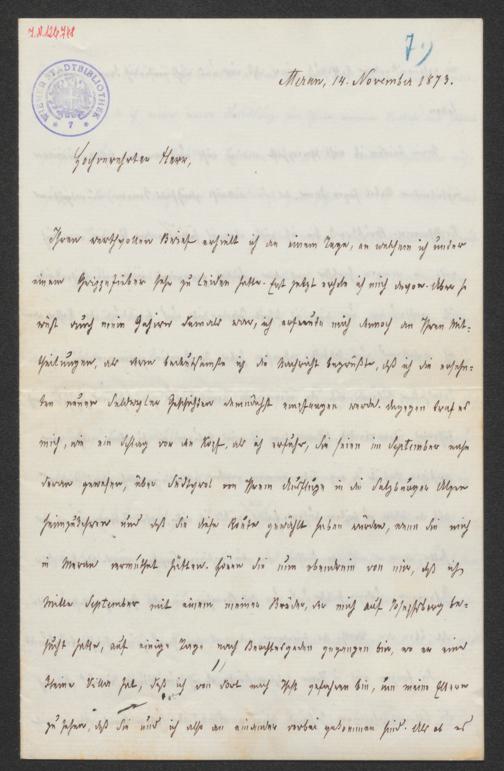 J.N. 126788
7.)
WIENER STADTBIBLIOTHEK
* 7 *
Meran, 14. November 1873.
Hochverehrter Herr,
Ihren werthvollen Brief erhielt ich an einem Tage, an welchem ich unter
einem Grippefieber sehr zu leiden hatte. Erst jetzt erhole ich mich davon. Aber so
wüst durch mein Gehirn damals war, ich erfreute mich dennoch an Ihren Mit-
theilungen, als deren bedeutsamste ich die Nachricht begrüßte, daß ich die ersehn-
ten neuen Seldwyler Geschichten demnächst empfangen werde. Dagegen traf es
mich, wie ein Schlag vor den Kopf, als ich erfuhr, Sie seien im September nahe
daran gewesen, über Südtyrol von Ihrem Ausfluge in die Salzburger Alpen
heimzukehren und daß Sie diese Route gewählt haben würden, wenn Sie mich
in Meran vermuthet hätten. Hören Sie nun obendrein von mir, daß ich
Mitte September mit einem meiner Brüder, der mich auf besucht
hatte, auf einige Tage nach Berchtesgaden gegangen bin, wo er eine
kleine Villa hat, daß ich von dort nach Ischl gefahren bin, um meine Eltern
zu sehen, daß Sie und ich also an einander vorbei gekommen sind. Als ob es